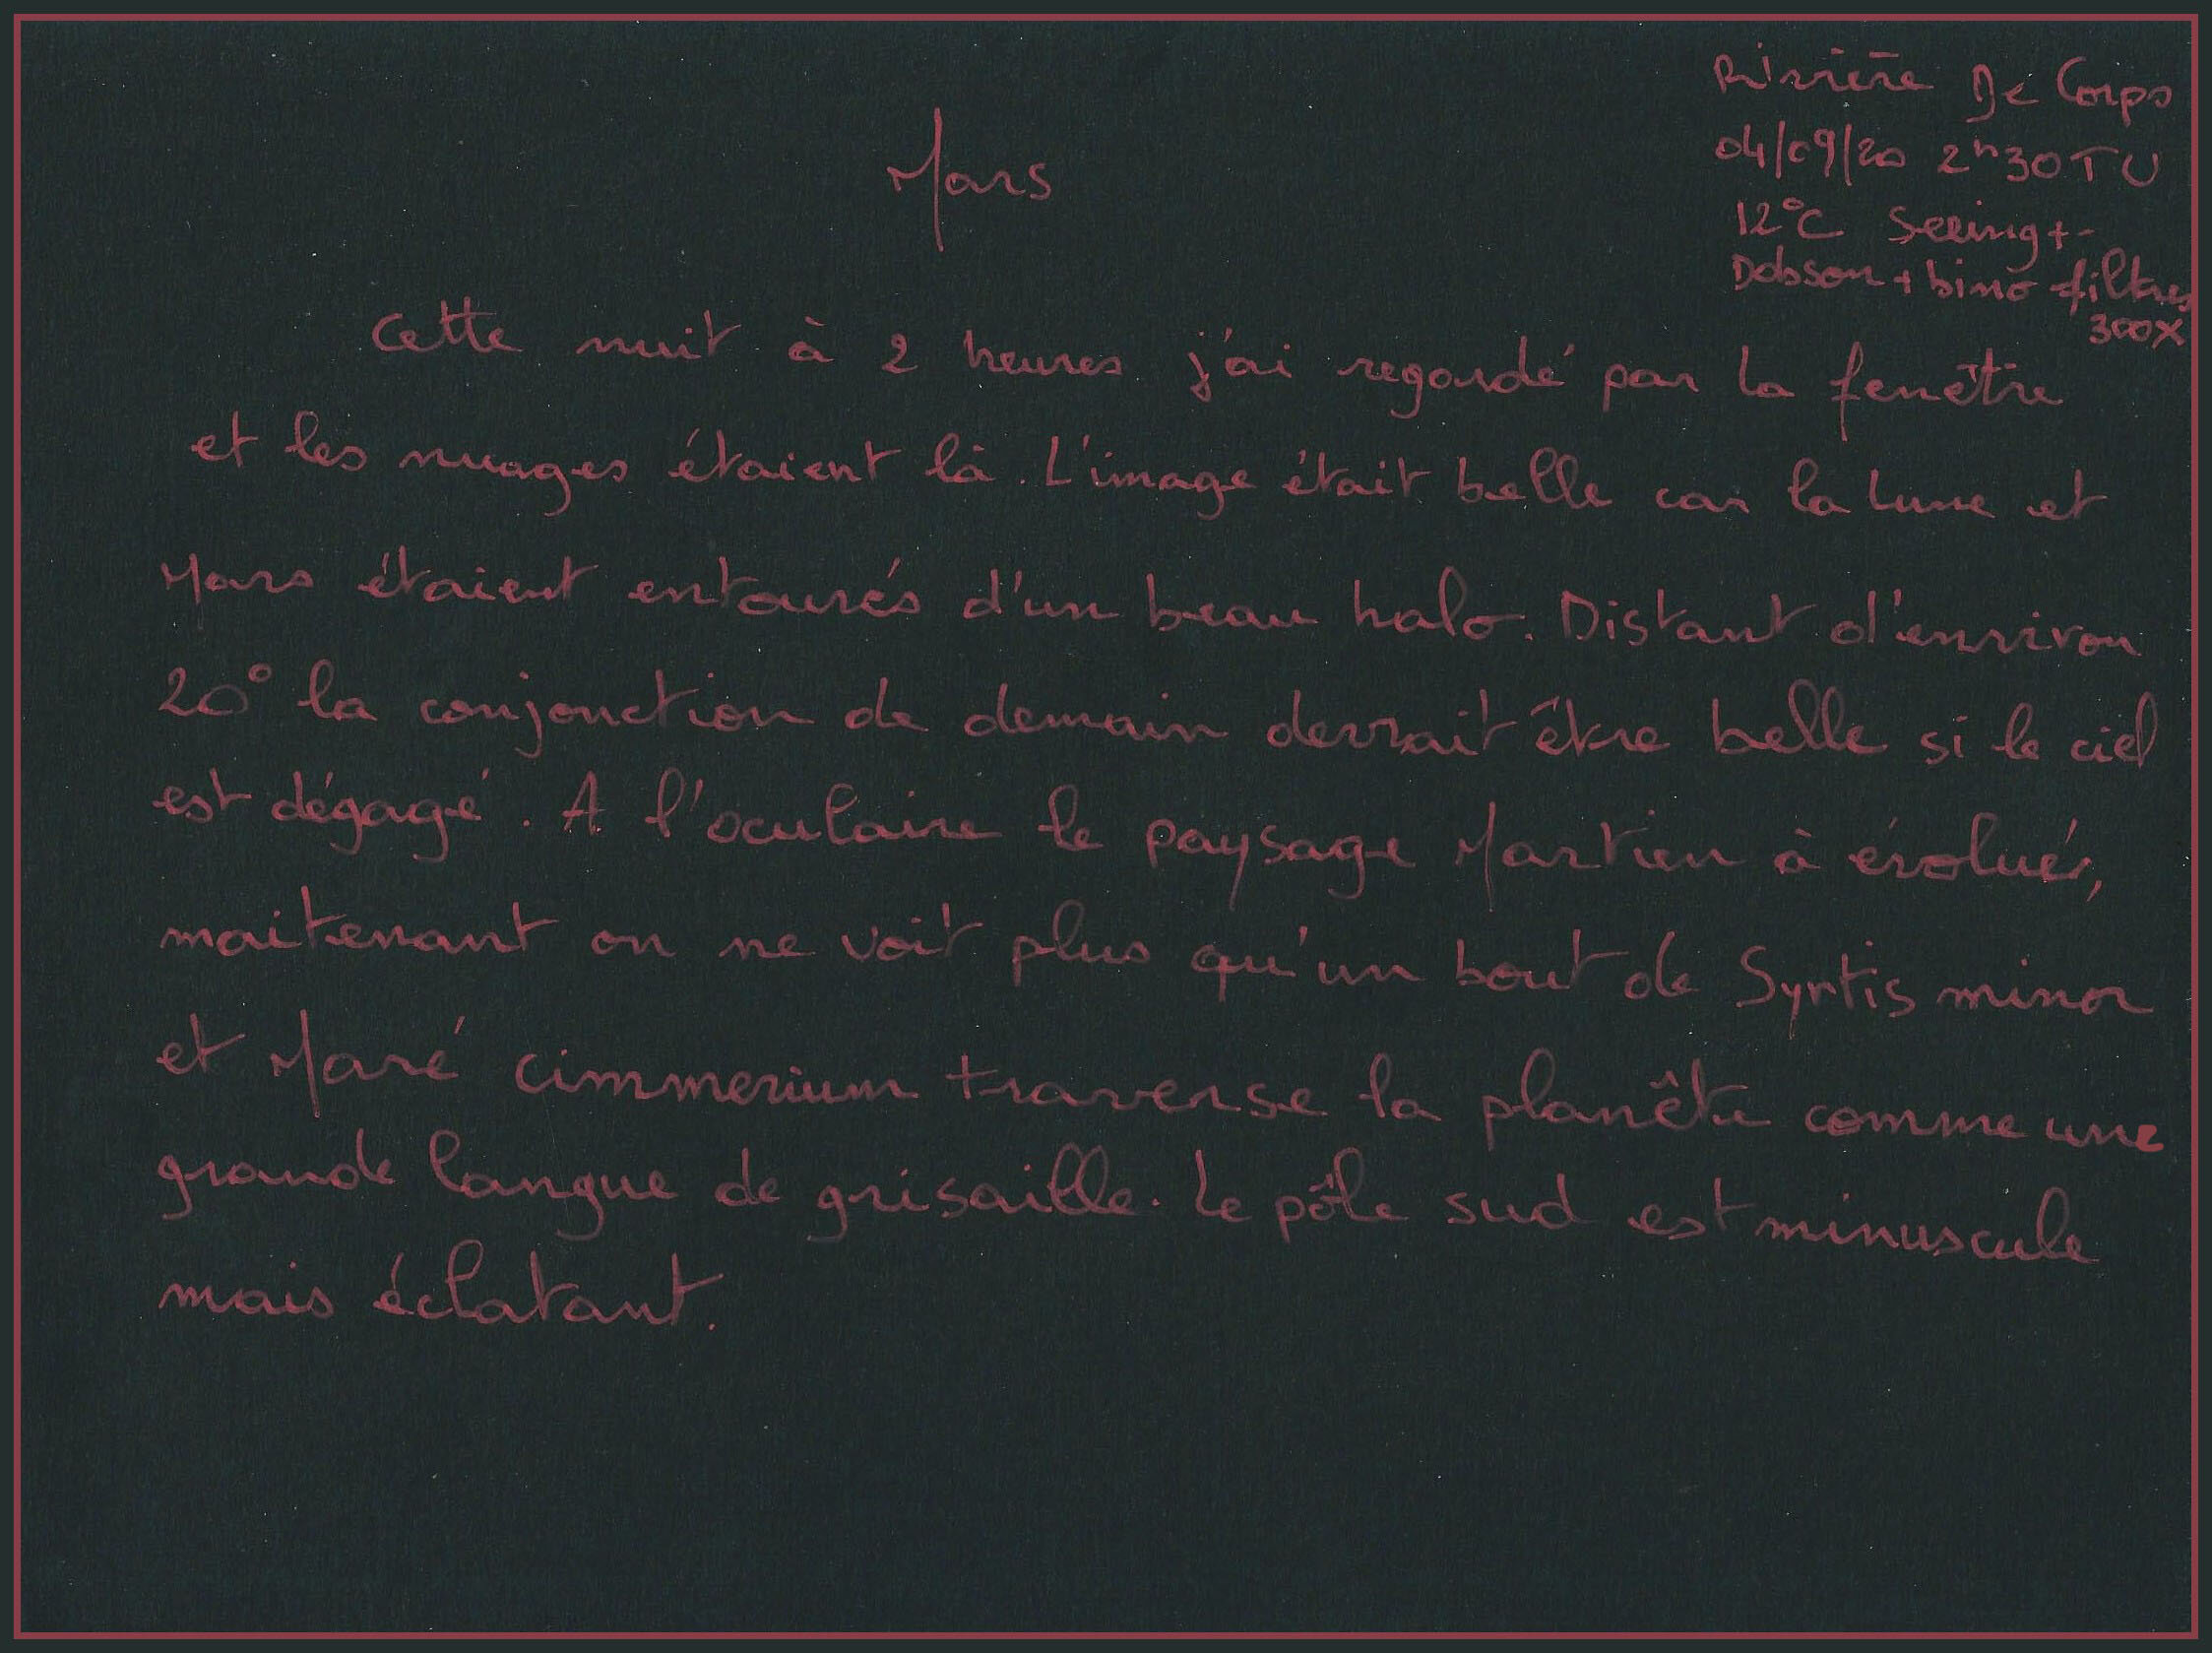 Rivière De Corps
04/09/20 2h30 TU
12°C Seeing+-
Dobson + bino filtres
300X
Mars
Cette nuit à 2 heures j'ai regardé par la fenêtre
et les nuages étaient là. L'image était belle car la Lune et
Mars étaient entourés d'un beau halo. Distant d'environ
20° la conjonction de demain devrait être belle si le ciel
est dégagé. A l'oculaire le paysage Martien à évolués,
maitenant on ne voit plus qu'un bout de Syrtis minor
et Maré cimmerium traverse la planête comme une
grande langue de grisaille. Le pôle sud est minuscule
mais éclatant.